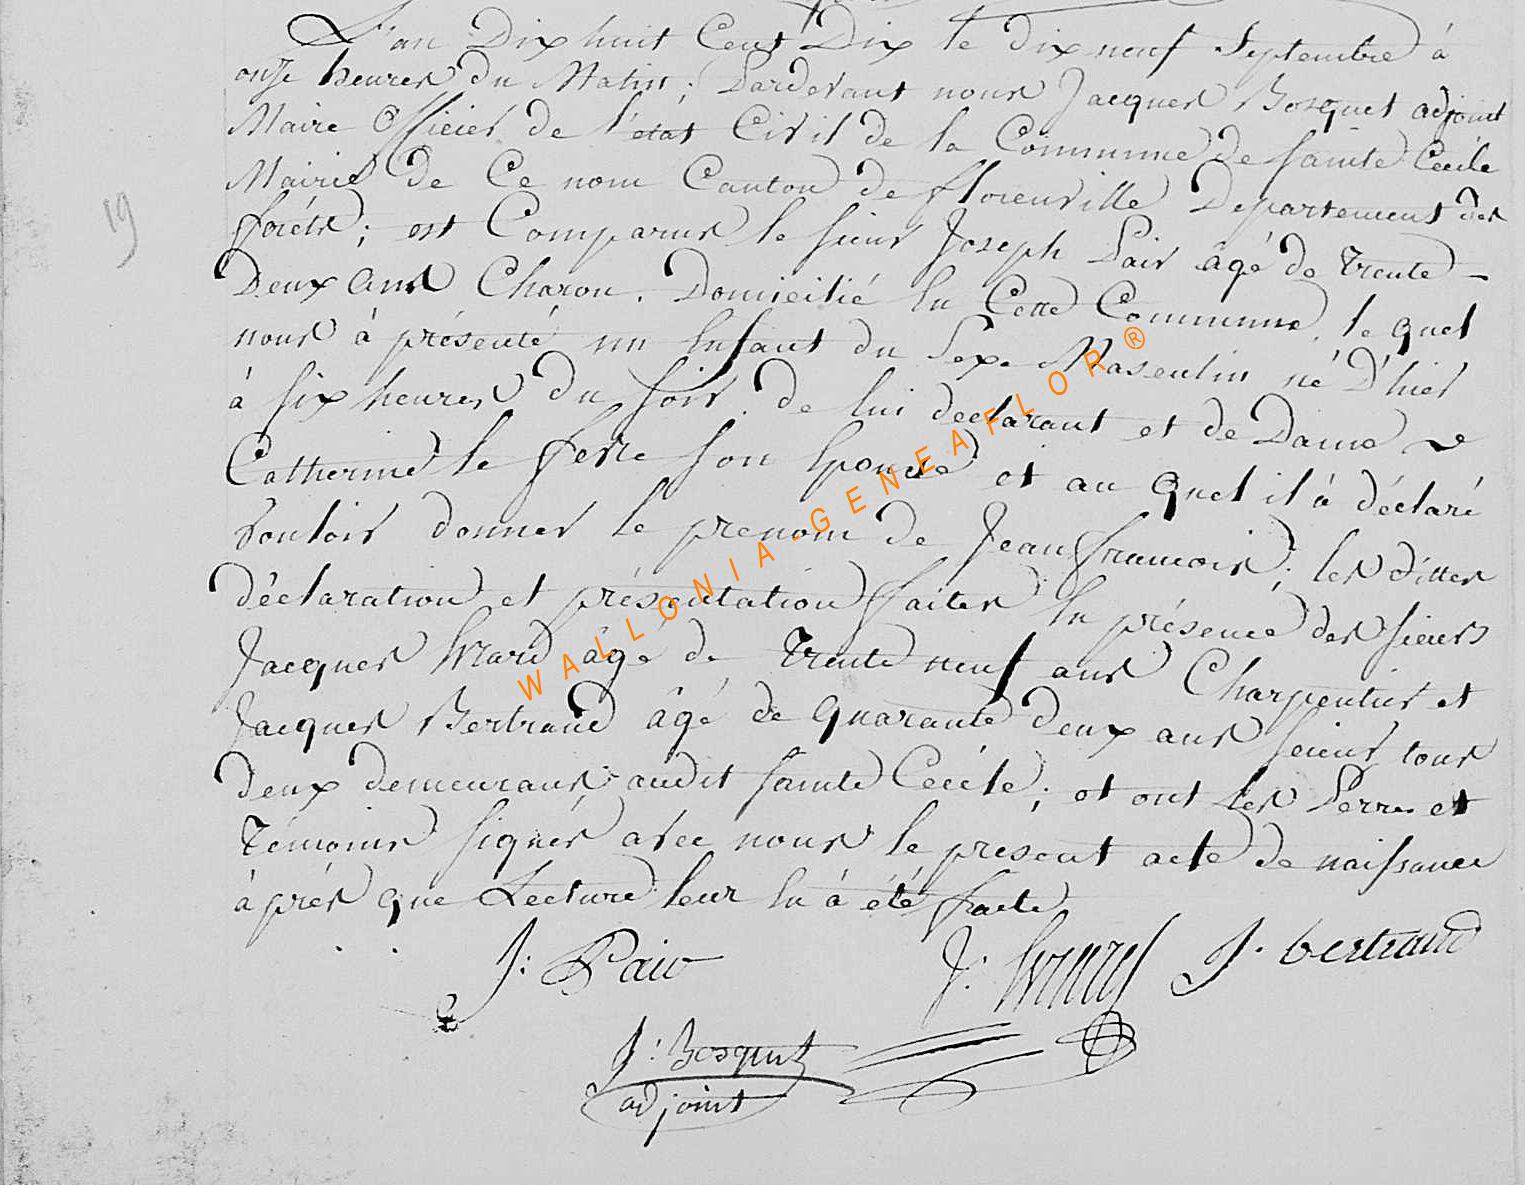 L'an Dix huit Cent Dix le dix neuf Septembre à
onze heures du Matin; Pardevant nous Jacques Bosquet adjoint
Maire Officier de l'état Civil de la Commune de Sainte Cécile
Mairie de Ce nom Canton de florenville Departement des
forêts; est Comparus le sieur Joseph Pair âgé de Trente-
Deux ans Charon. Domicilié en Cette Commune. le quel
nous à présenté un Enfant du Sexe Masculin né D'hier
à six heures du soir. de lui declarant et de Dame
Catherine le fevre son Epouse et au quel il à déclaré
vouloir donner le prenom de Jean francois; les dittes
déclaration et présentation faites en présence des sieurs
Jacques Evrard âgé de Trente neuf ans Charpentier et
Jacques Bertrand âgé de quarante deux ans scieur tous
deux demeurans audit Sainte Cécile; et ont les Perre et
Témoins signés avec nous le présent acte de naissance
àprés que Lecture leur en à été faite
J: Pair J: Evrard J. bertrand
J: Bosquet
adjoint
19
WALLONIA-GENEAFLOR®